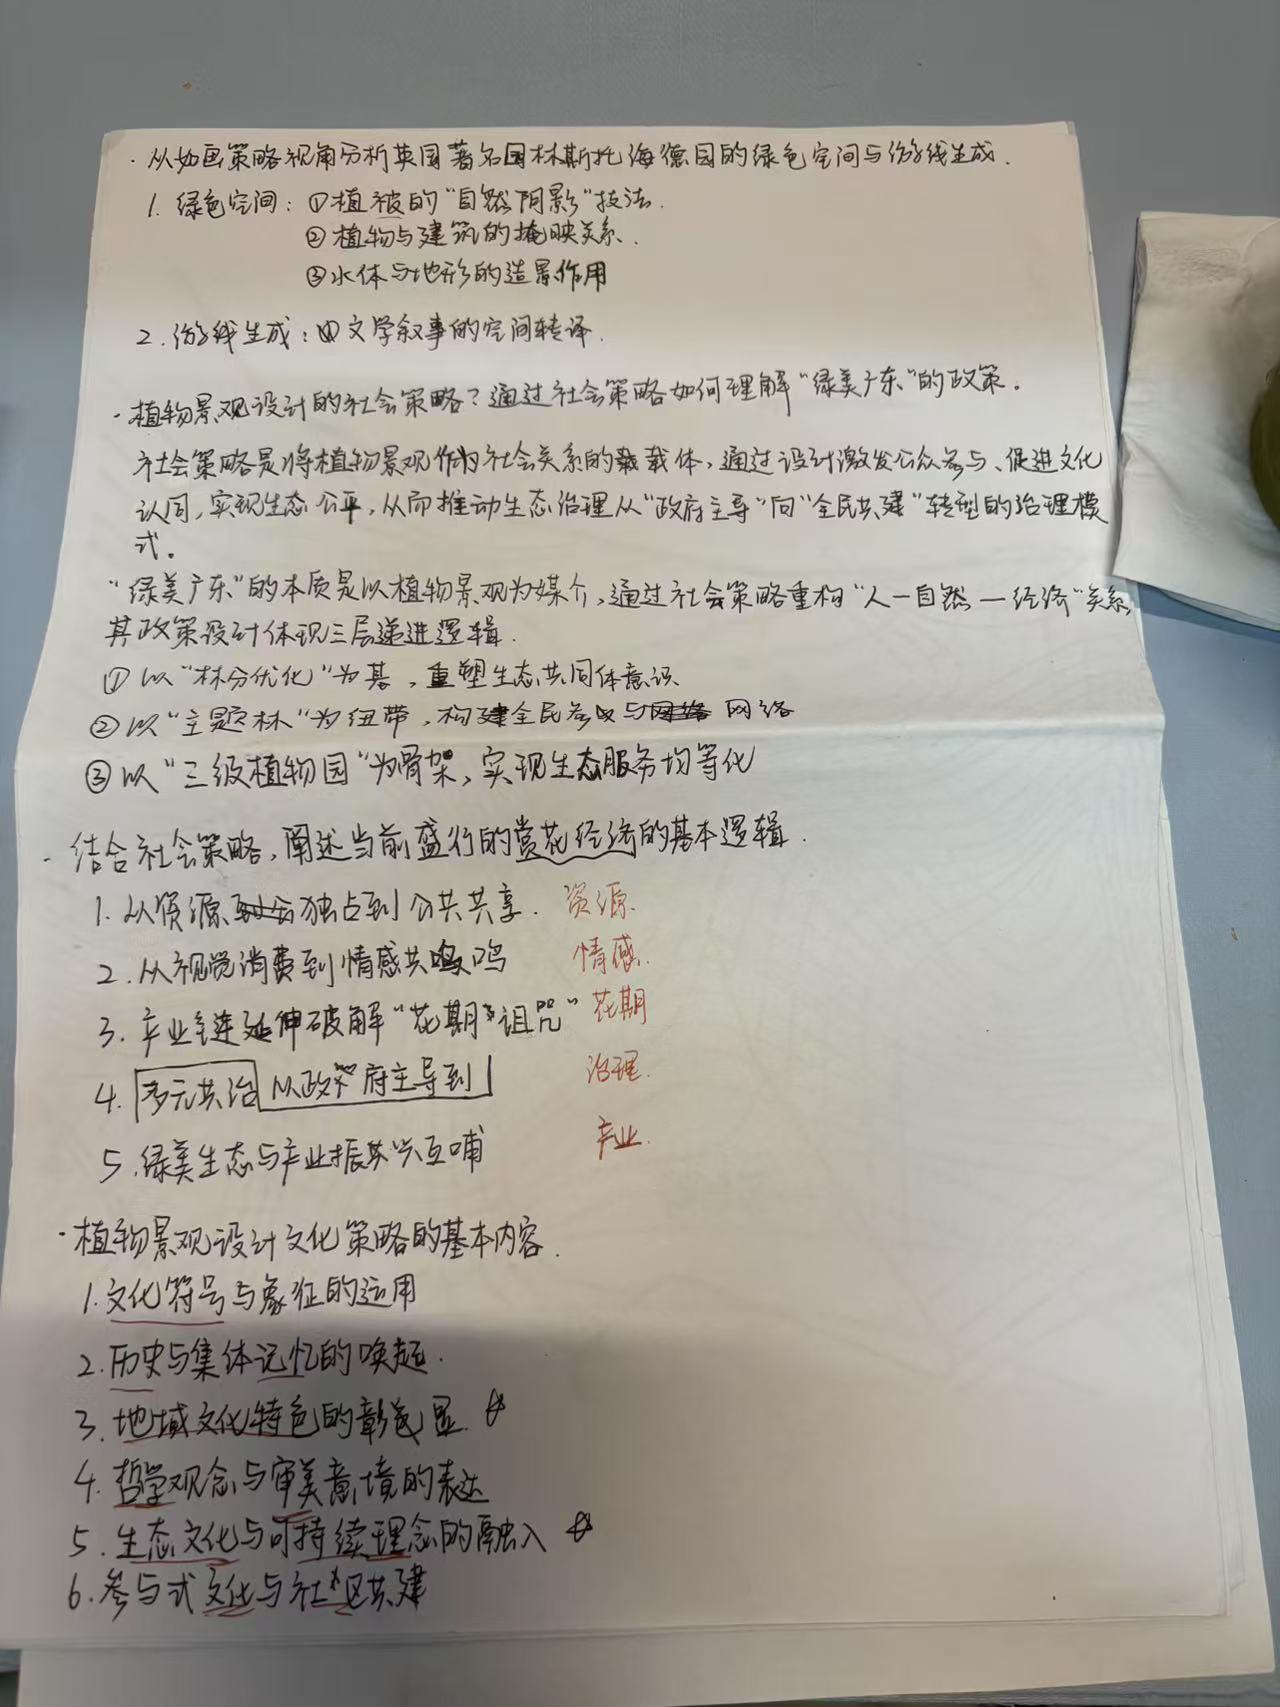 · 从如画策略视角分析英国著名园林斯托海德园的绿色空间与游线生成.
1. 绿色空间: ①植被的"自然阴影"技法.
②植物与建筑的掩映关系.
③水体与地形的造景作用
2. 游线生成: ①文学叙事的空间转译.
· 植物景观设计的社会策略?通过社会策略如何理解"绿美广东"的政策.
社会策略是将植物景观作为社会关系的载体,通过设计激发公众参与、促进文化
认同,实现生态公平,从而推动生态治理从"政府主导"向"全民共建"转型的治理模
式。
"绿美广东"的本质是以植物景观为媒介,通过社会策略重构"人一自然一经济"关系,
其政策设计体现三层递进逻辑.
①以"林分优化"为基,重塑生态共同体意识
②以"主题林"为纽带,构建全民参与网络
③以"三级植物园"为骨架,实现生态服务均等化
· 结合社会策略,阐述当前盛行的赏花经济的基本逻辑.
1. 从资源独占到公共共享. 资源.
2. 从视觉消费到情感共鸣 情感.
3. 产业链延伸破解"花期诅咒" 花期
4. 多元共治 从政府主导到 治理.
5. 绿美生态与产业振兴互哺 产业.
· 植物景观设计文化策略的基本内容.
1. 文化符号与象征的运用
2. 历史与集体记忆的唤起.
3. 地域文化特色的彰显. ☆
4. 哲学观念与审美意境的表达
5. 生态文化与可持续理念的融入 ☆
6. 参与式文化与社区共建